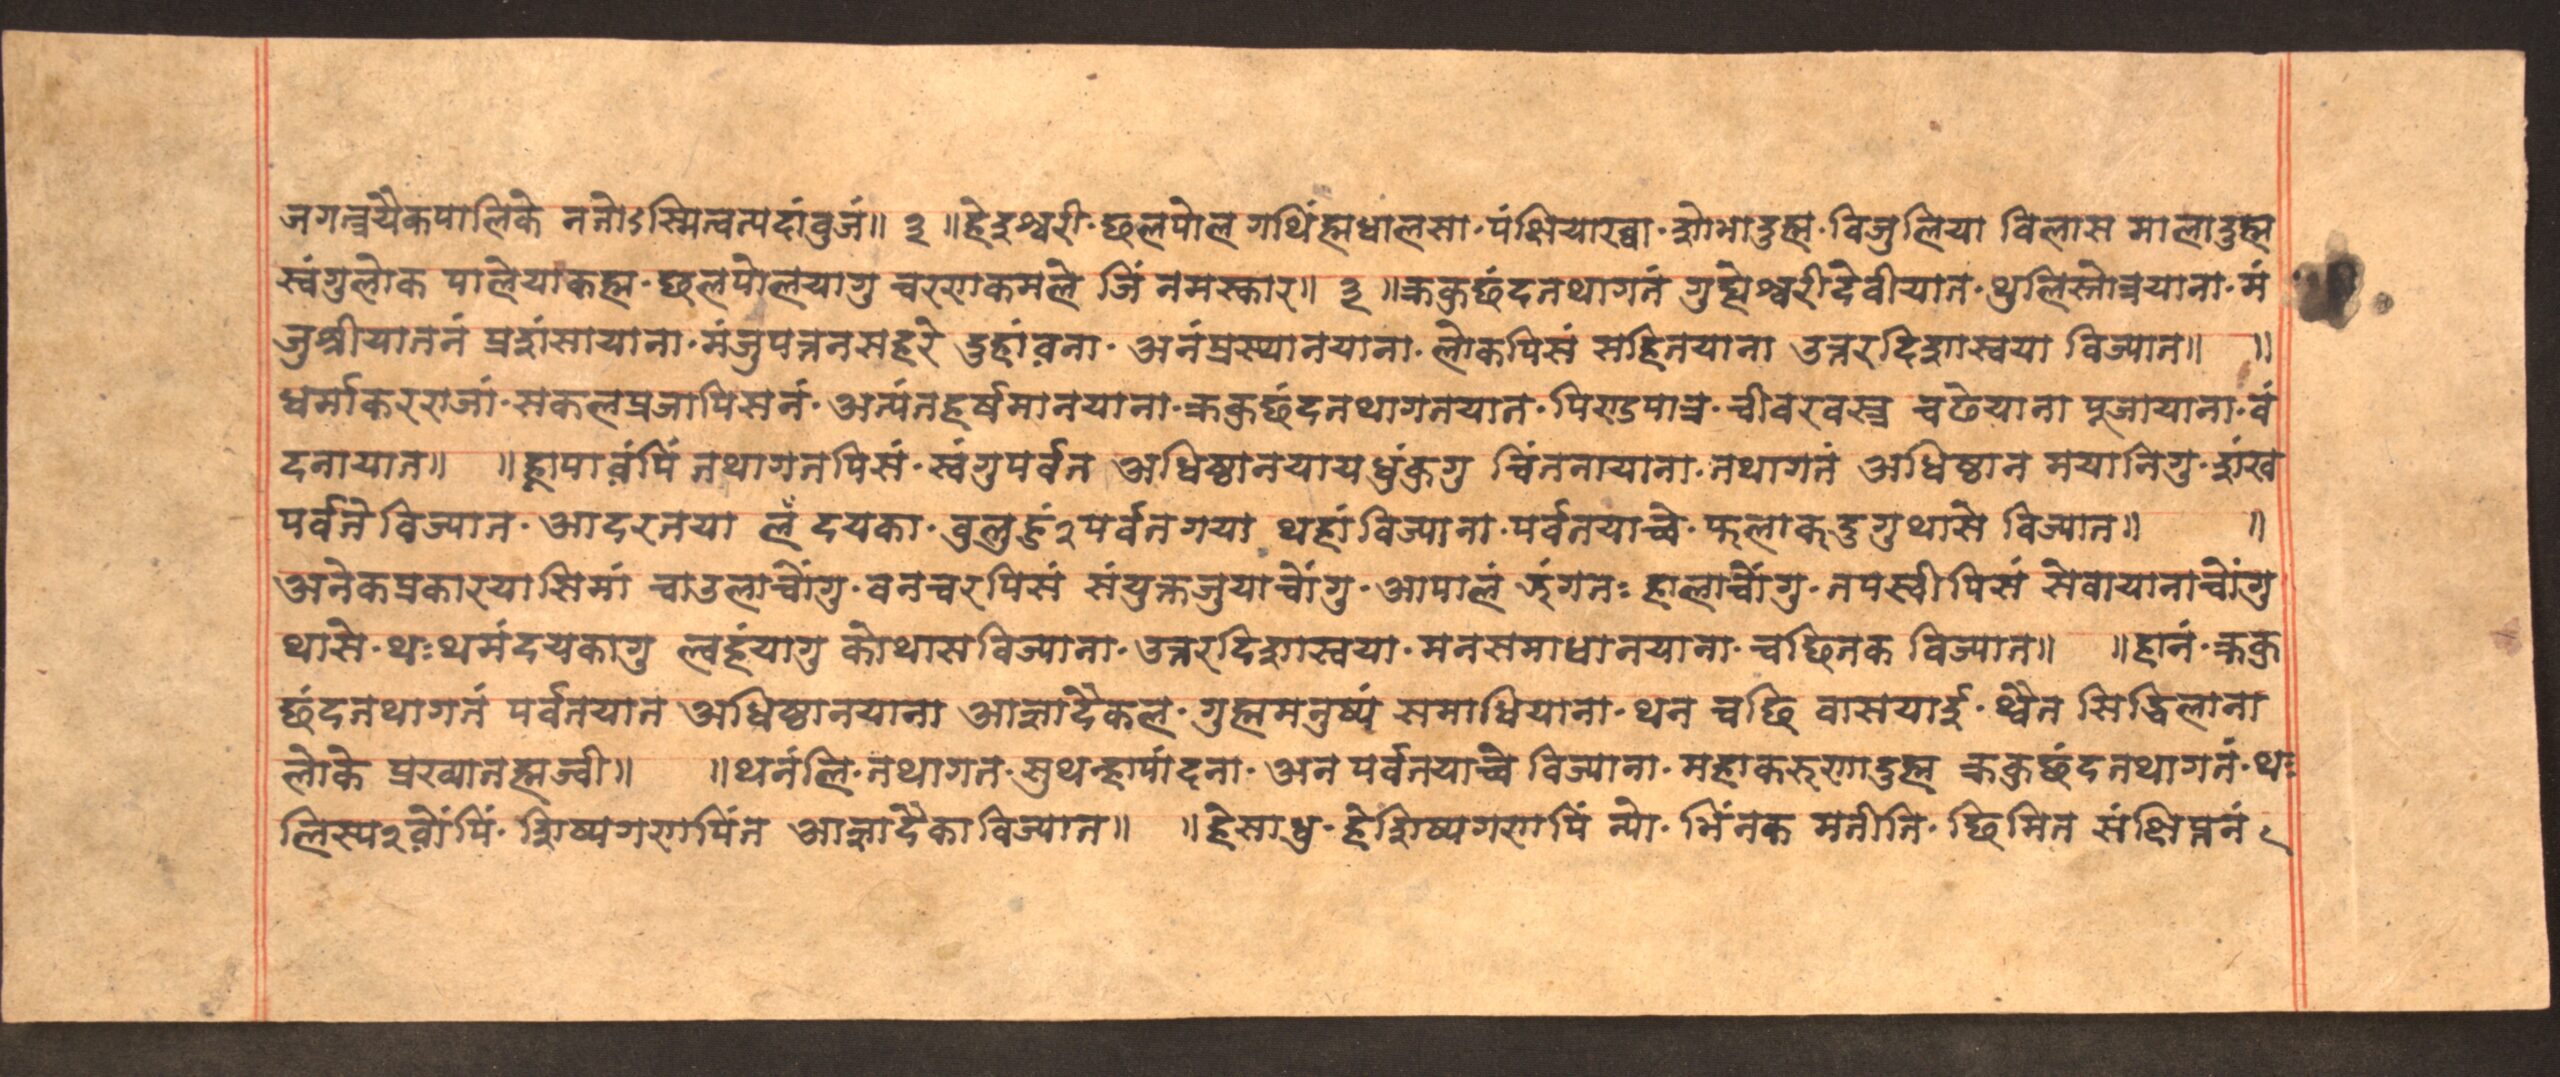 जगत्त्रयैकपालिके नतोऽस्मित्वत्पदांवुजं॥ ३ ॥हेइश्वरी·छलपोल गथिंह्मधालसा·पंक्षियारत्वा·शोभादुह्म·विजुलिया विलास मालादुह्म
स्वंगुलोक पालेयाकह्म·छलपोलयागु चरणकमले जिं नमस्कार॥ ३ ॥क्रकुछंदतथागतं गुह्येश्वरीदेवीयात·थुलिस्तोत्रयाना·मं
जुश्रीयाततं प्रशंसायाना·मंजुपत्तनसहरे दुहांव़ना·अनंप्रस्थानयाना·लोकपिसं सहितयाना उत्तरदिशास्वया विज्यात॥ ॥
धर्माकरराजां·सकलप्रजापिसनं·अत्यंतहर्षमानयाना·क्रकुछंदतथागतयात·पिण्डपात्र·चीवरवस्त्र चढेयाना पूजायाना·वं
दनायात॥ ॥हूापाव़ंपिं तथागतपिसं·स्वंगुपर्वत अधिष्ठानयायधुंकुगु चिंतनायाना·तथागतं अधिष्ठान मयानिगु·शंख
पर्वतेविज्यात·आदरनया लँ दयका·वुलुहुं२पर्वतगया थहांविज्याना·पर्वतयाच्वे·फलाकदुगुथासे विज्यात॥ ॥
अनेकप्रकारयासिमां चाउलाच्वोंगु·वनचरपिसं संयुक्तजुयाच्वोंगु·आपालं झंगतः हालाच्वोंगु·तपस्वीपिसं सेवायानाच्वोंगु
थासे·थःथमंदयकागु ल्वहंयागु कोथासविज्याना·उत्तरदिशास्वया·मनसमाधानयाना·चछितक विज्यात॥ ॥हानं·क्रकु
छंदतथागतं पर्वतयात अधिष्ठानयाना आज्ञादेकल·गुह्ममनुष्यं समाधियाना·थन चछि वासयाई·थ्वैत सिद्धिलाना
लोके प्रख्यातह्मज्वी॥ ॥थनंलि·तथागत·सुथन्हापांदना·अन पर्वतयाच्वे विज्याना·महाकरुणादुह्म क्रकुछंदतथागतं·थः
लिस्य२व़ोंपिं·शिष्यगणपिंत आज्ञादेकाविज्यात॥ ॥हेसाधु·हेशिष्यगणपिं न्यो·भिंनक मतीति·छिमित संक्षिप्तनं